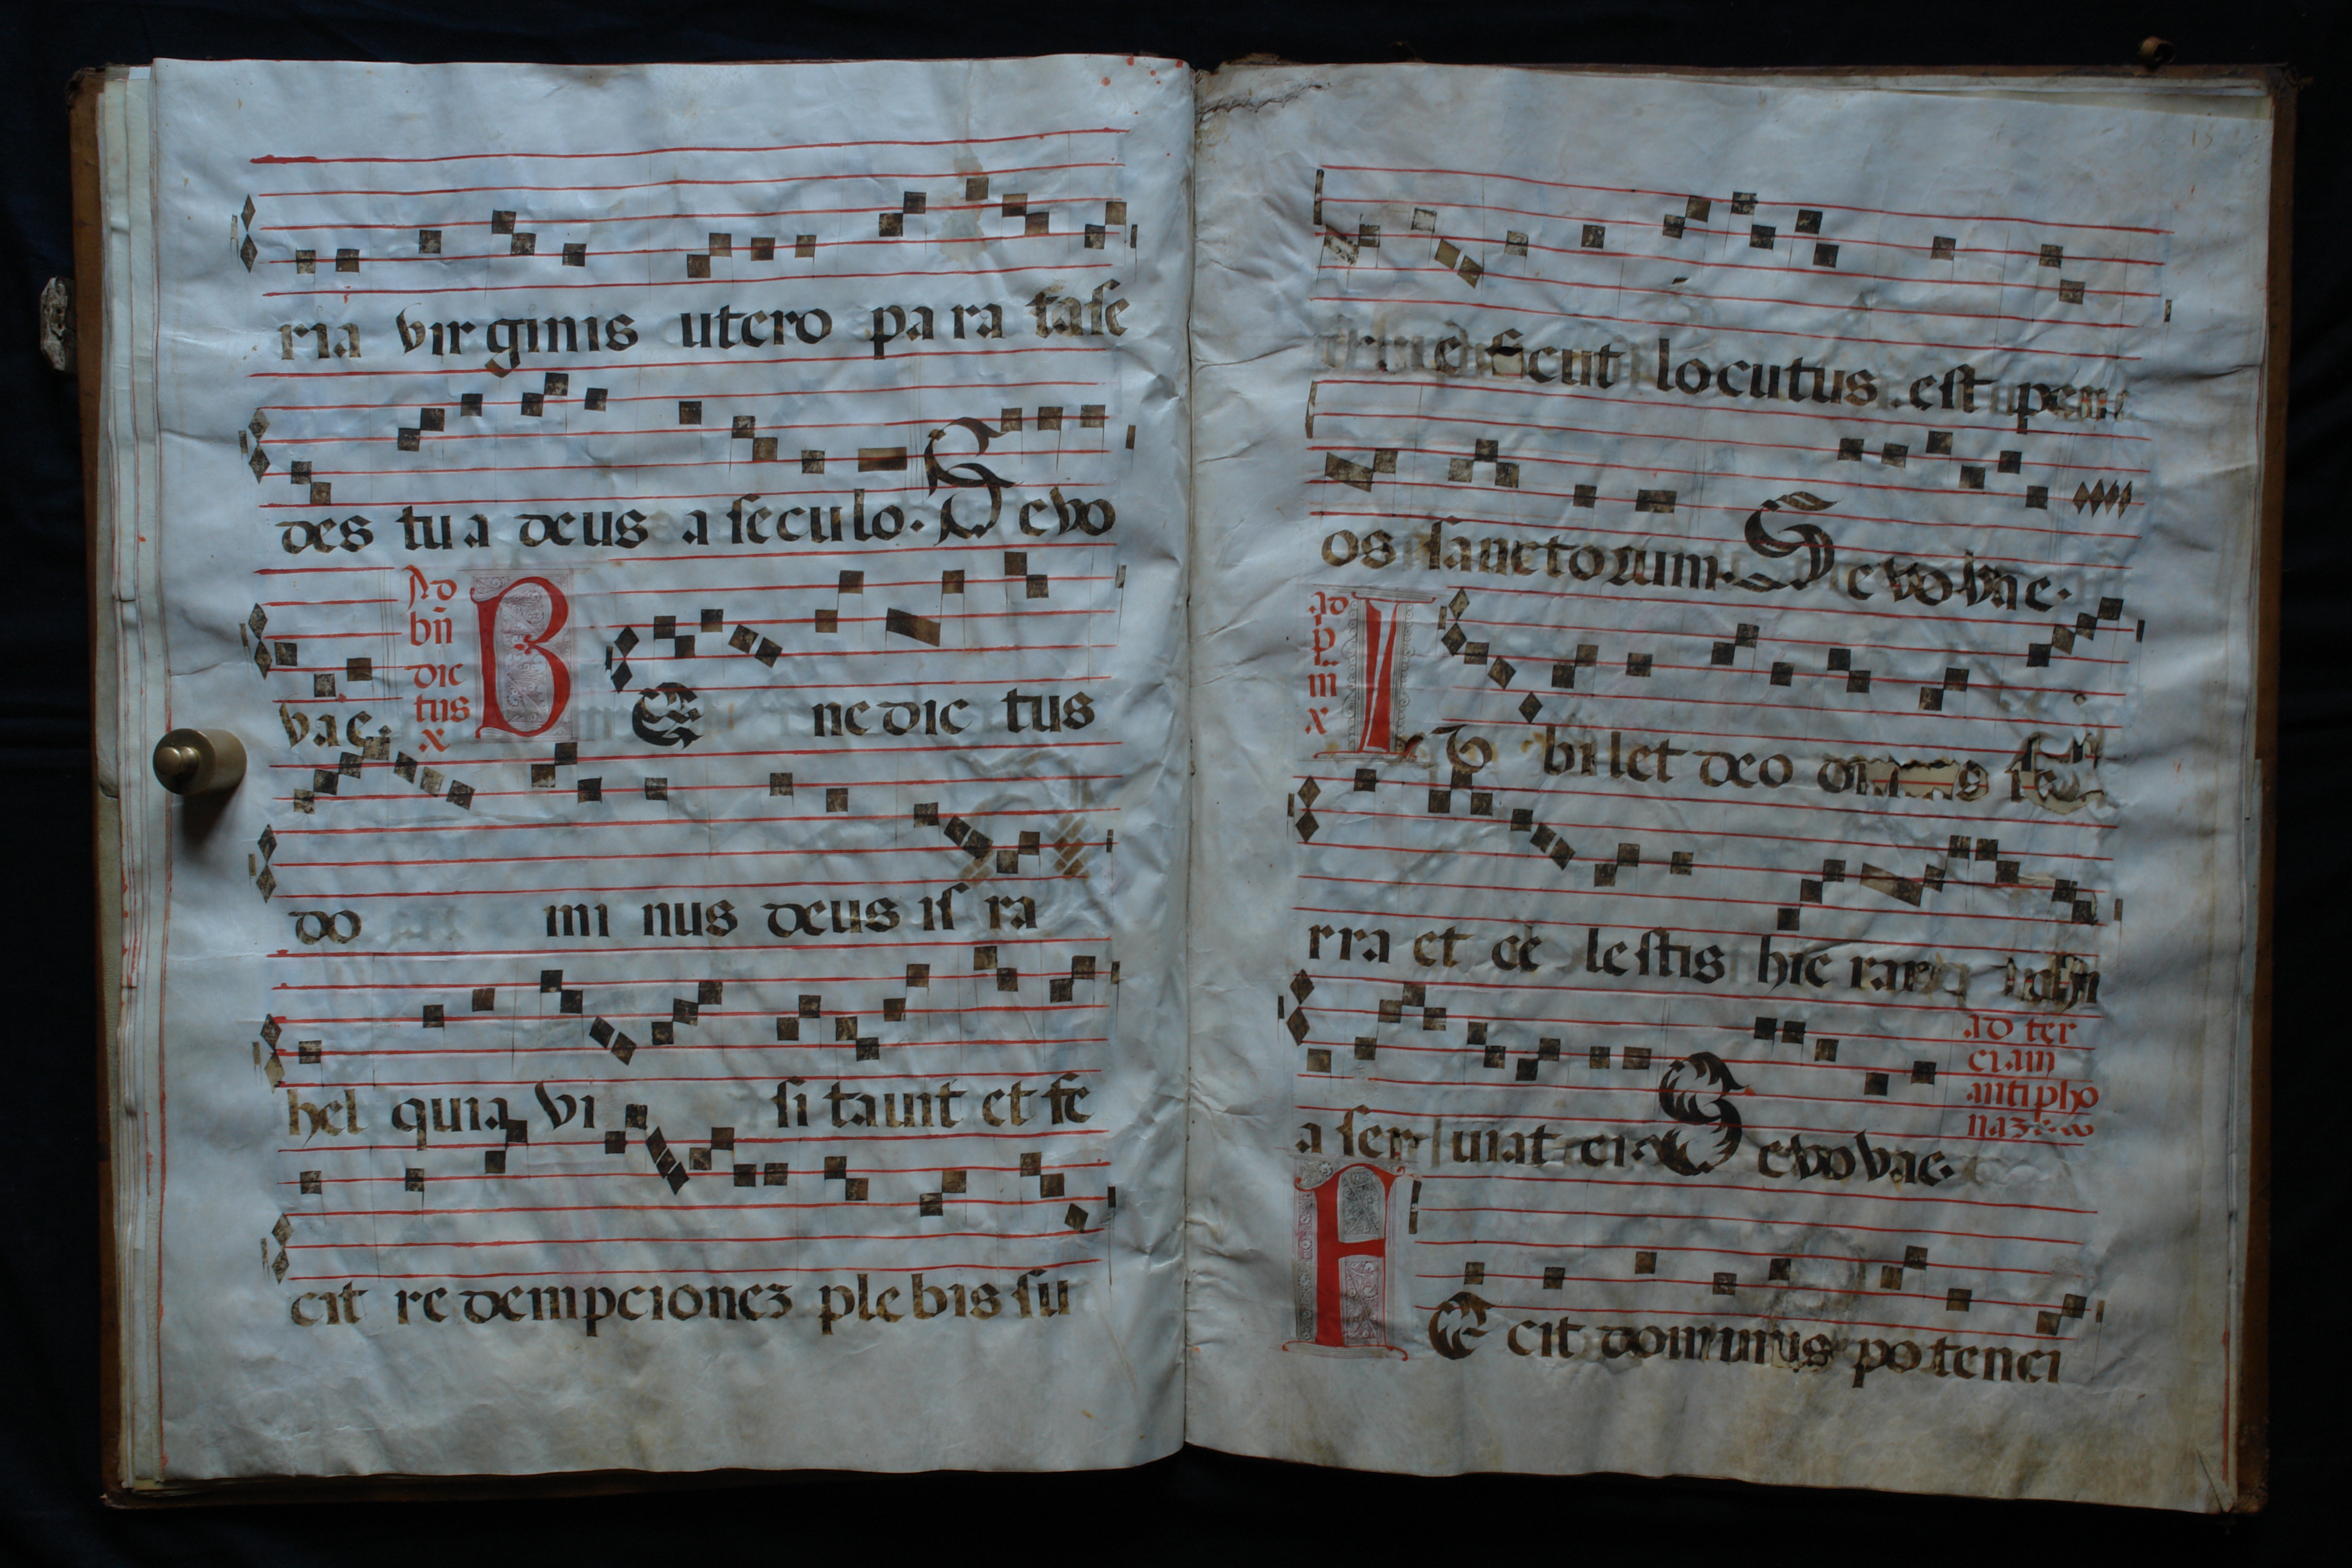 ria virginis utero para tase
des tua deus a seculo. Sevo
vae.
Ad
bn̄
dic
tus
x
BE ne dic tus
do mi nus deus is ra
hel quia vi si tavit et fe
cit re dempcionez plebis su
e sicut locutus est per
os sanctorum. Sevovae.
ad
p
m
x
IV bilet deo omnis
rra et ce lestis hie rar
a ser uiat ei. Sevovae.
ad ter
ciam
antipho
na
FE cit dominus potenci